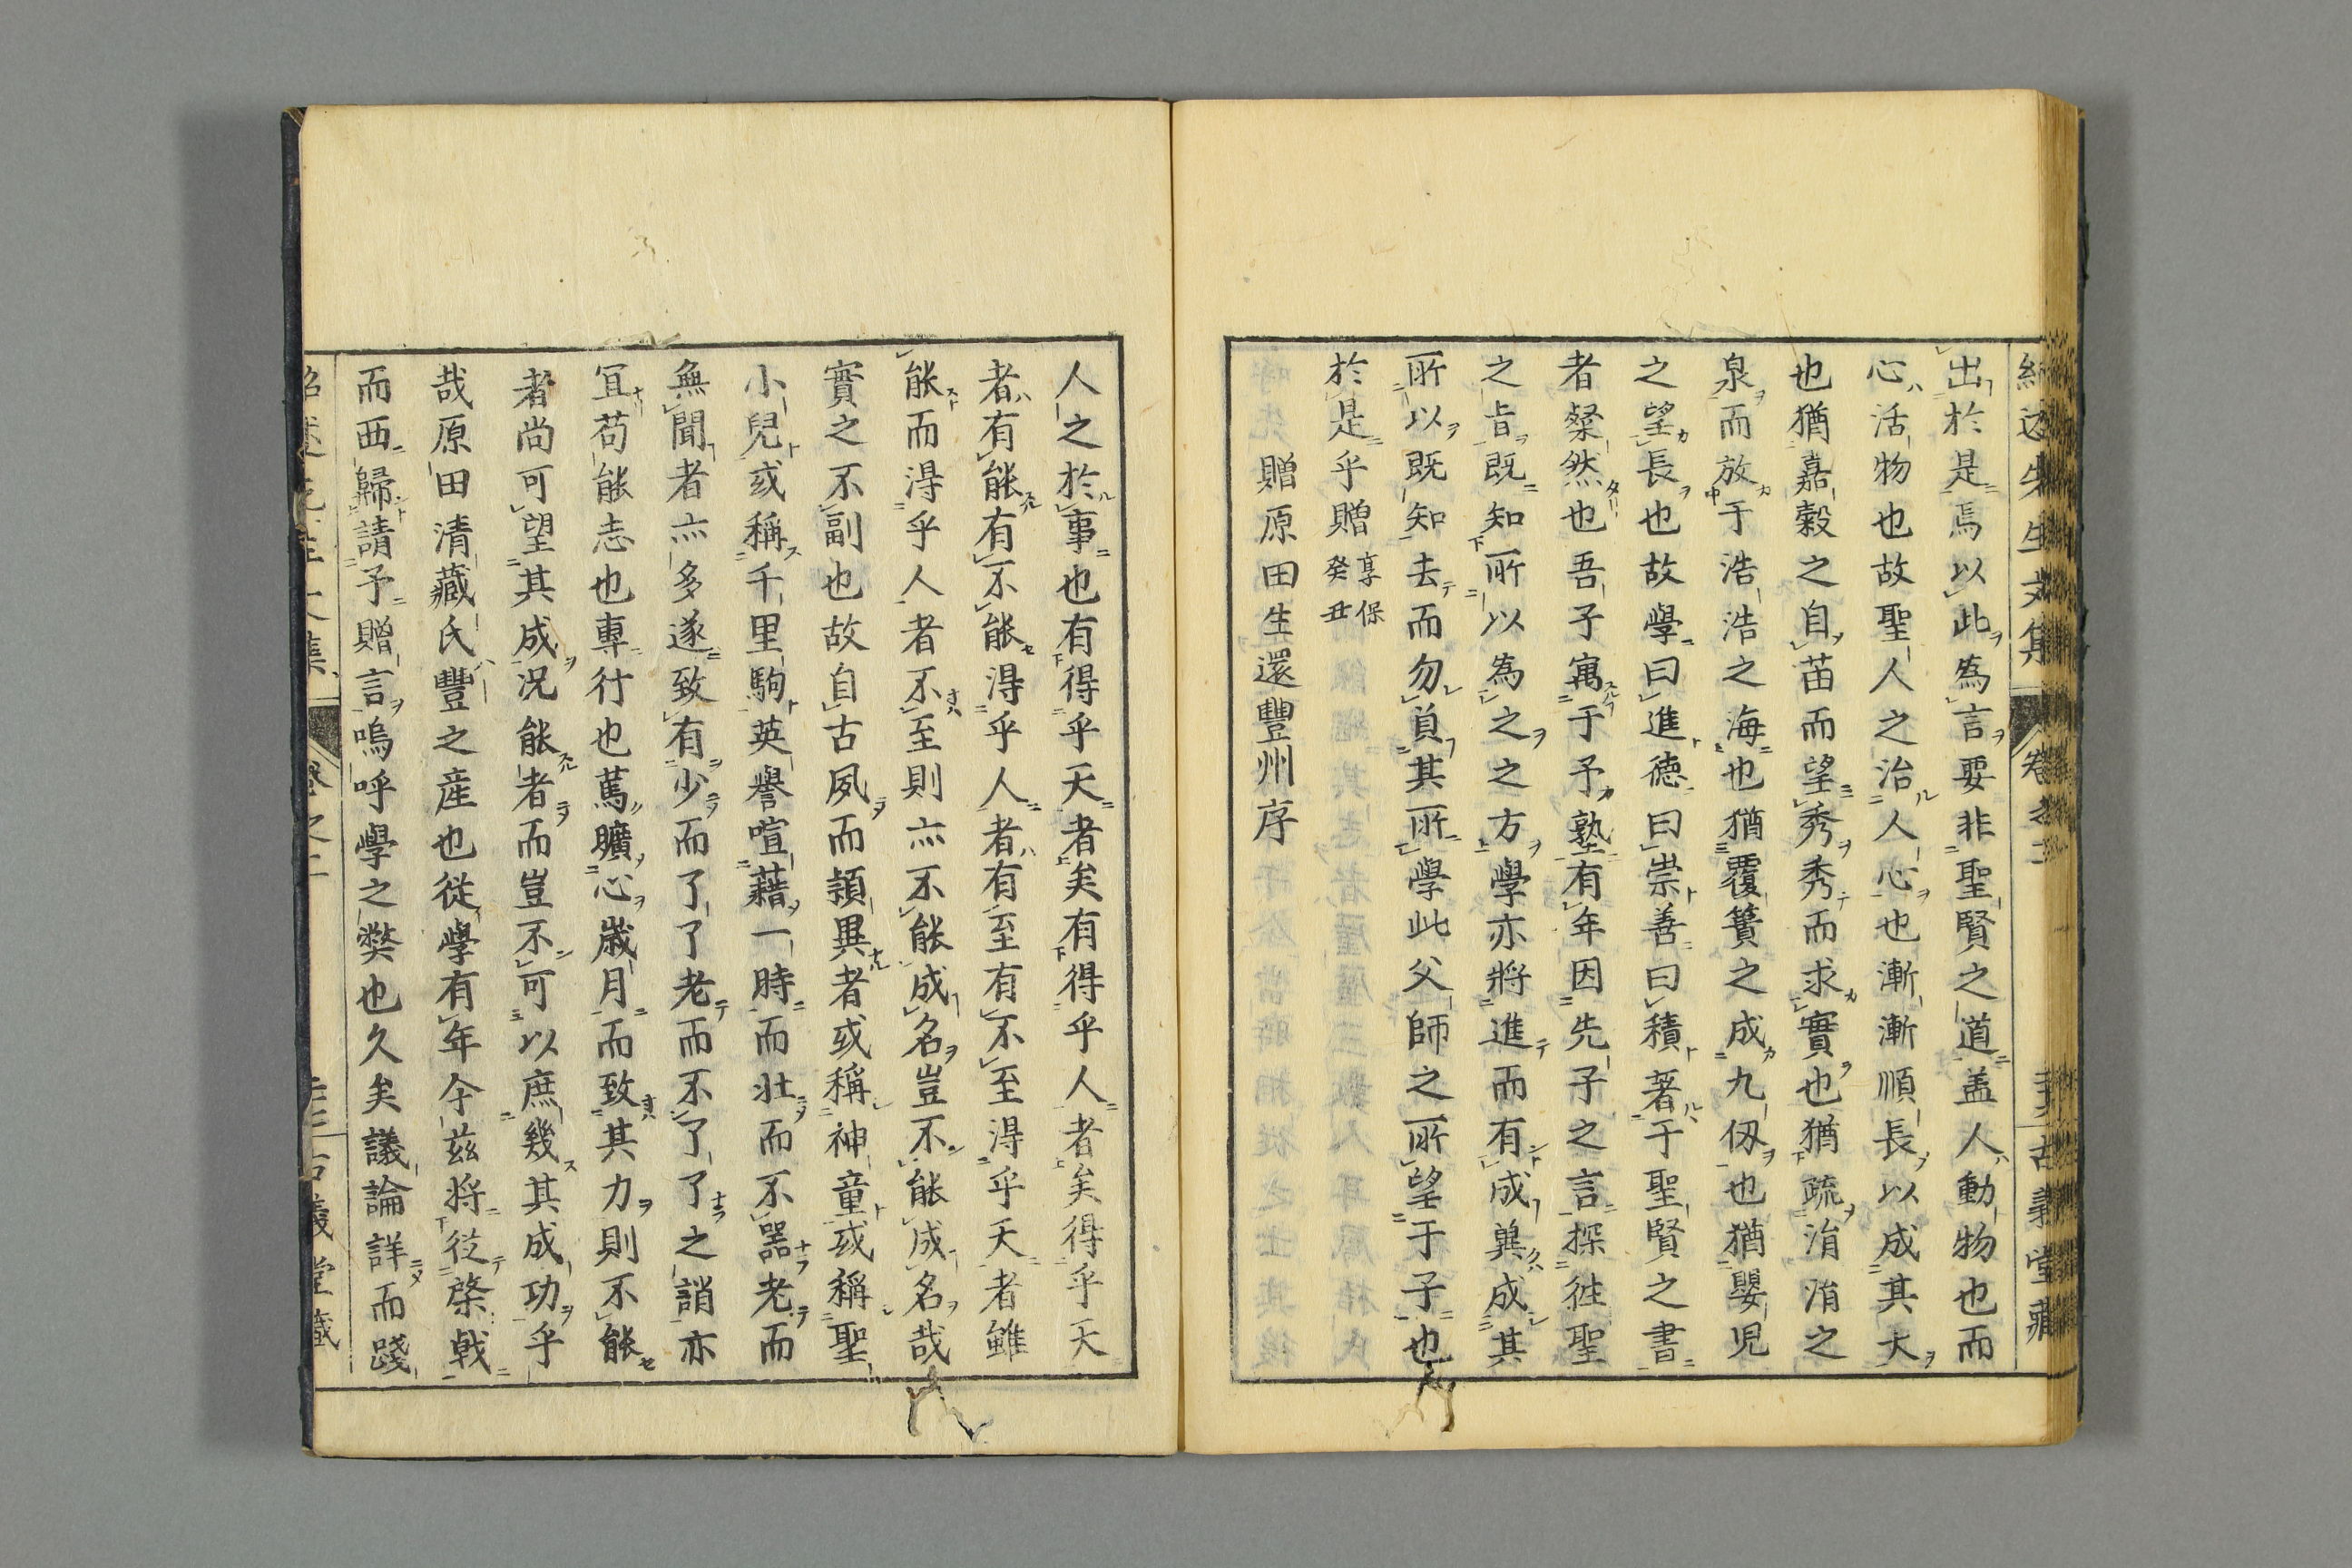 出於是焉以此為言要非聖賢之道盖人動物也而
心活物也故聖人之治人心也漸漸順長以成其大
也猶嘉穀之自苗而望秀秀而求實也猶疏涓涓之
泉而放于浩浩之海也猶覆簣之成九仭也猶嬰児
之望長也故學曰進德曰崇善曰積著于聖賢之書
者粲然也吾子寓于予塾有年因先子之言探徃聖
之旨既知所以為之之方學亦將進而有成兾成其
所以既知去而勿負其所學此父師之所望于子也
於是乎贈享保癸丑
贈原田生還豐州序
人之於事也有得乎天者矣有得乎人者矣得乎天
者有能有不能得乎人者有至有不至得乎天者雖
能而得乎人者不至則亦不能成名豈不能成名哉
實之不副也故自古夙而頴異者或稱神童或稱聖
小兒或稱千里駒英譽喧藉一時而壮而不噐老而
無聞者亦多遂致有少而了了老而不了了之誚亦
冝苟能志也專行也篤曠心歳月而致其力則不能
者尚可望其成况能者而豈不可以庶幾其成功乎
哉原田清藏氏豐之産也從學有年今茲将從棨戟
而西歸請予贈言嗚呼學之獘也久矣議論詳而踐